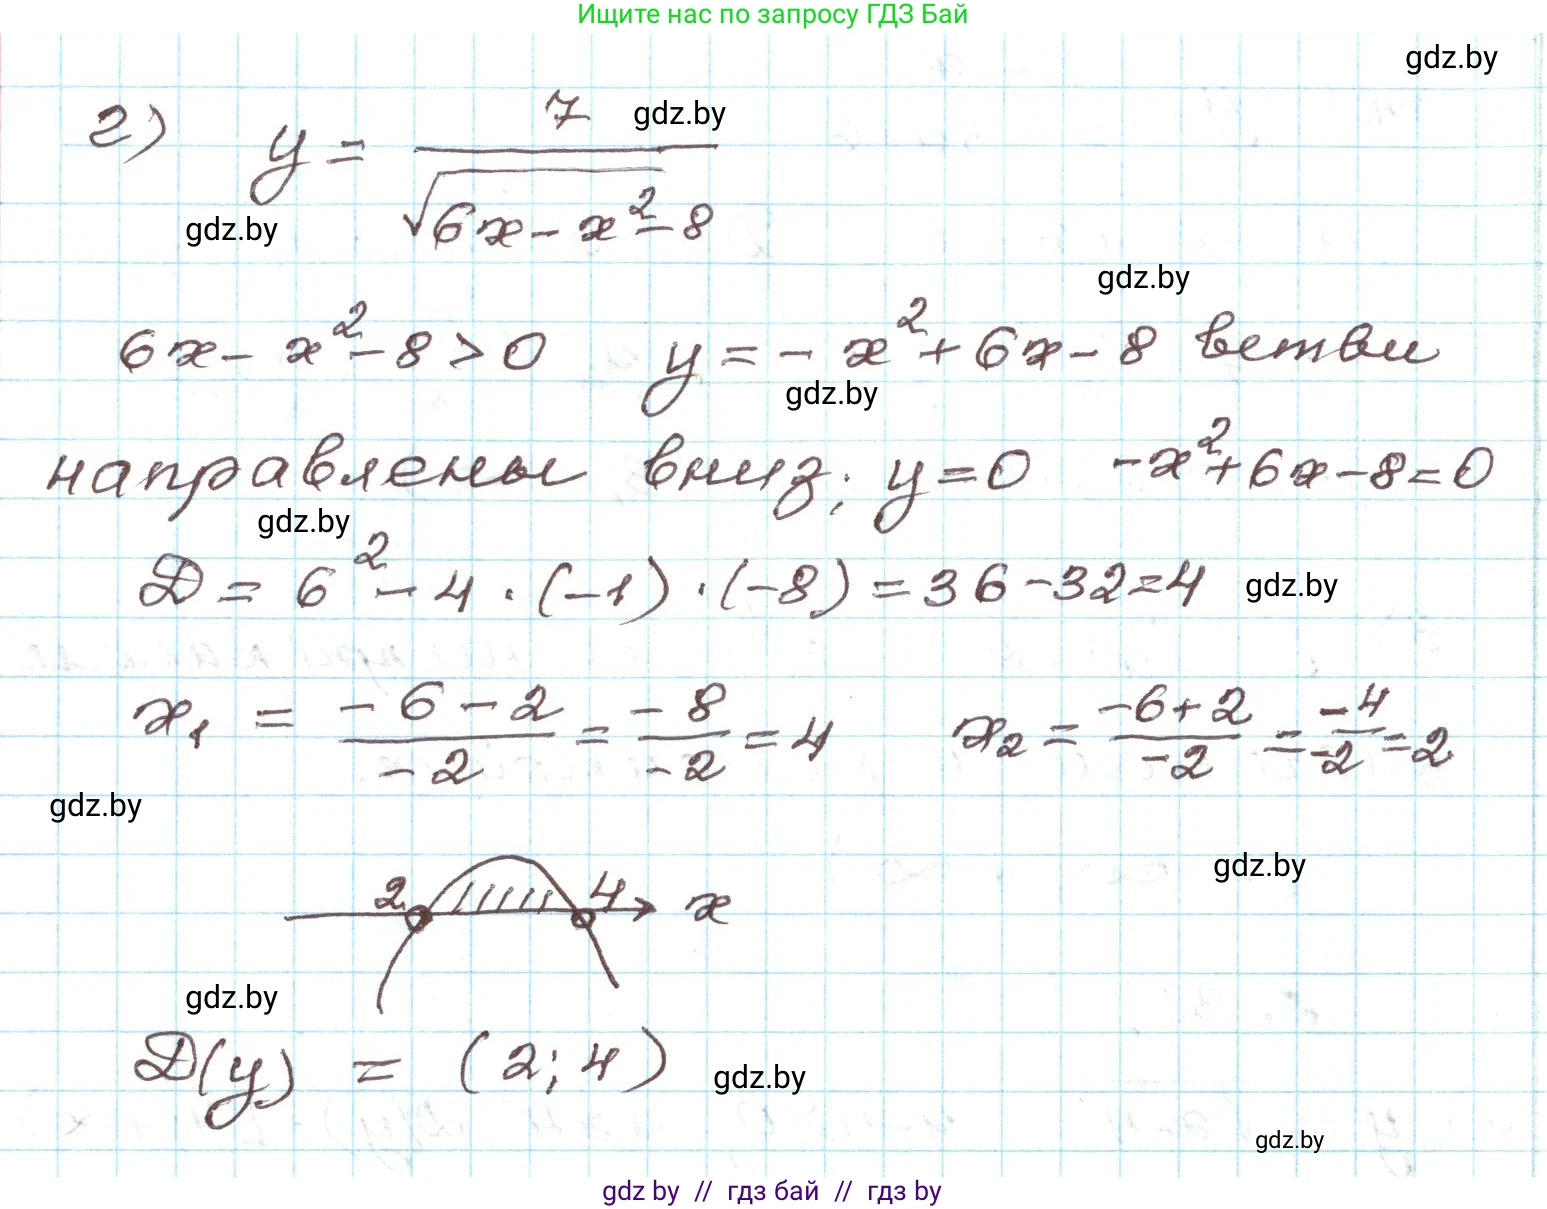 Ищите нас по запросу ГДЗ Бай
gdz.by
2) y = 7 / √(6x - x² - 8)
gdz.by
gdz.by
gdz.by
6x - x² - 8 > 0 y = - x² + 6x - 8 ветви
gdz.by
направлены вниз; y = 0 -x² + 6x - 8 = 0
gdz.by
D = 6² - 4 · (-1) · (-8) = 36 - 32 = 4 gdz.by
x₁ = (-6 - 2) / -2 = -8 / -2 = 4 x₂ = (-6 + 2) / -2 = -4 / -2 = 2
gdz.by
gdz.by
2 4 x
gdz.by
D(y) = (2; 4) gdz.by
gdz.by
gdz by // гдз бай // гдз by